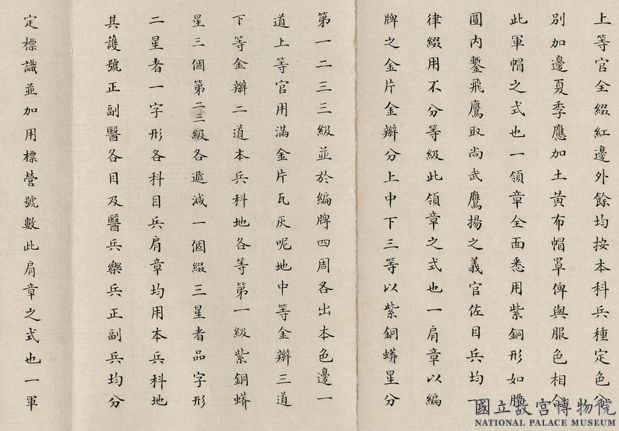 上等官全綴紅邊外餘均按本科兵種定色分
別加邊夏季應加土黃布帽罩俾與服色相合
此軍帽之式也一領章全面悉用紫銅形如腰
圓內鏨飛鷹取尚武鷹揚之義官佐目兵均一
律綴用不分等級此領章之式也一肩章以編
牌之金片金辮分上中下三等以紫銅蟒星分
第一二三三級並於編牌四周各出本色邊一
道上等官用滿金片瓦灰呢地中等金辮三道
下等金辮二道本兵科地各等第一級紫銅蟒
星三個第二三級各遞減一個綴三星者品字形
二星者一字形各科目兵肩章均用本兵科地
其護號正副醫各目及醫兵樂兵正副兵均分
定標識並加用標營號數此肩章之式也一軍
國立故宮博物院
NATIONAL PALACE MUSEUM